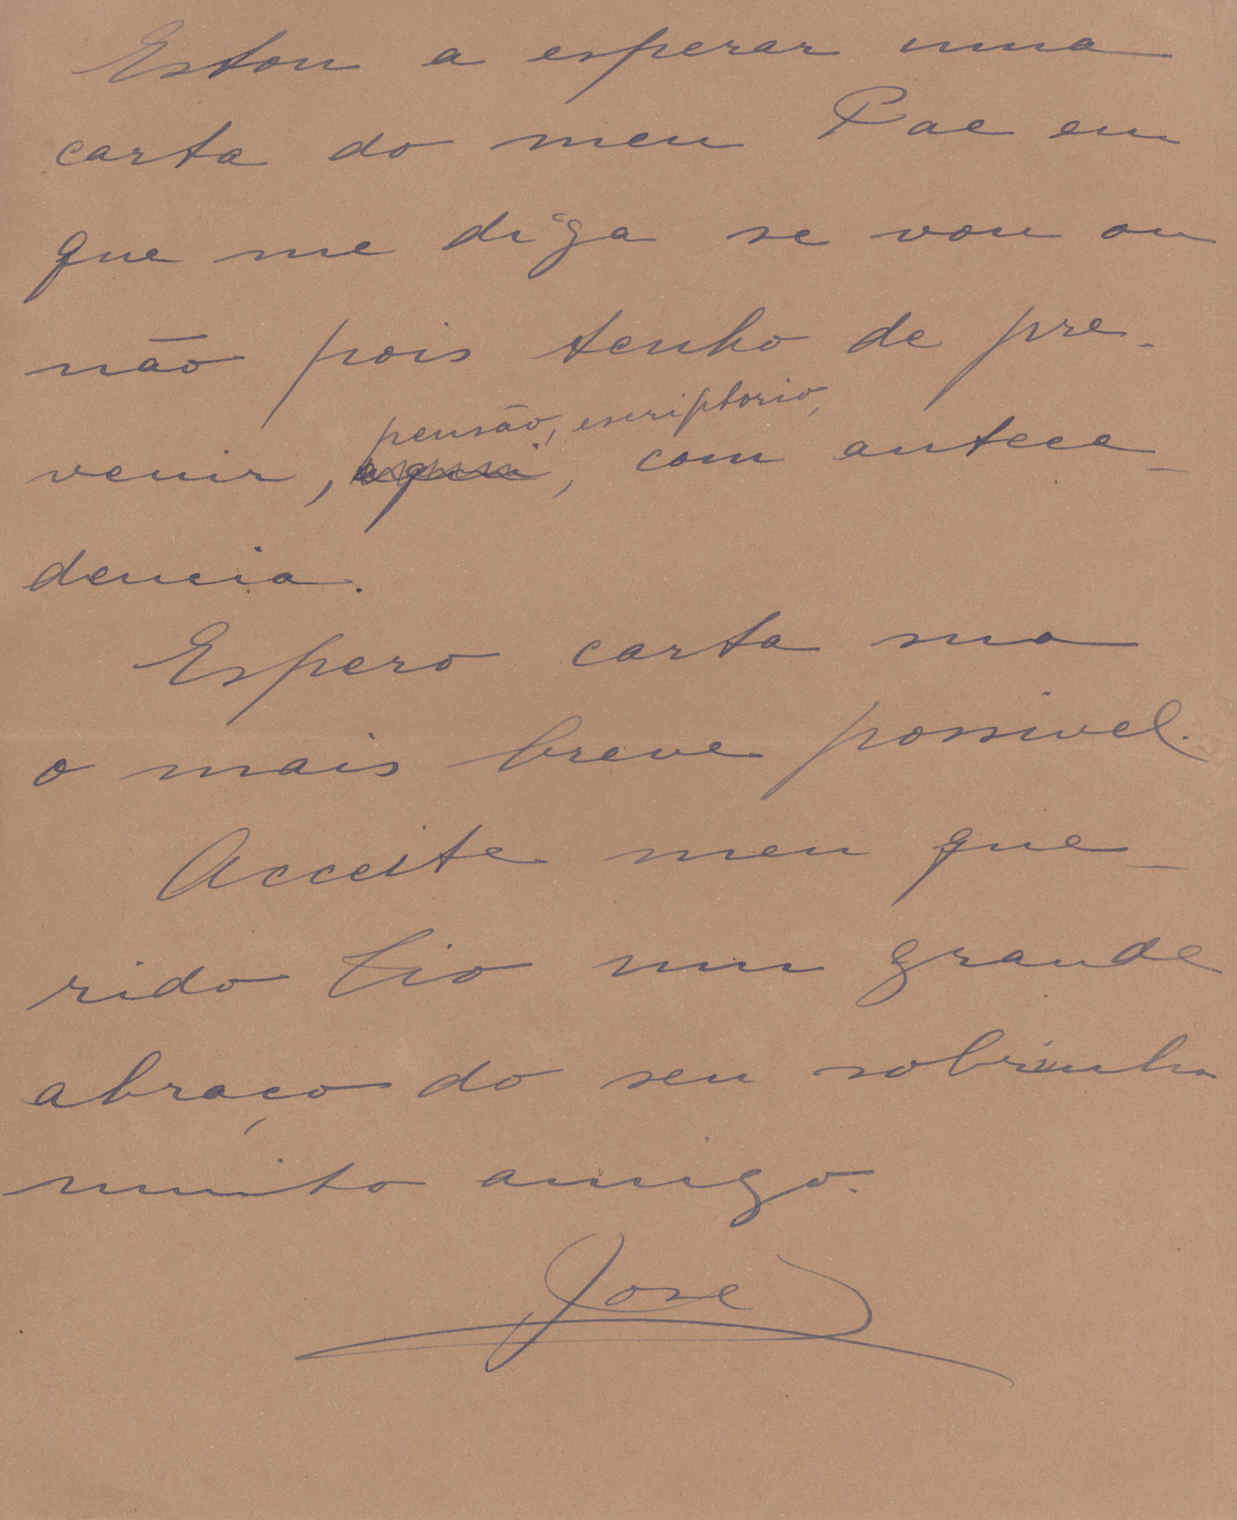 Estou a esperar uma
carta do meu Pae em
que me diga se vou ou
não pois tenho de pre-
pensão, escriptorio,
venir, aqui, com antece-
dencia.
Espero carta sua
o mais breve possivel.
Acceite meu que-
rido tio um grande
abraço do seu sobrinho
muito amigo.
José